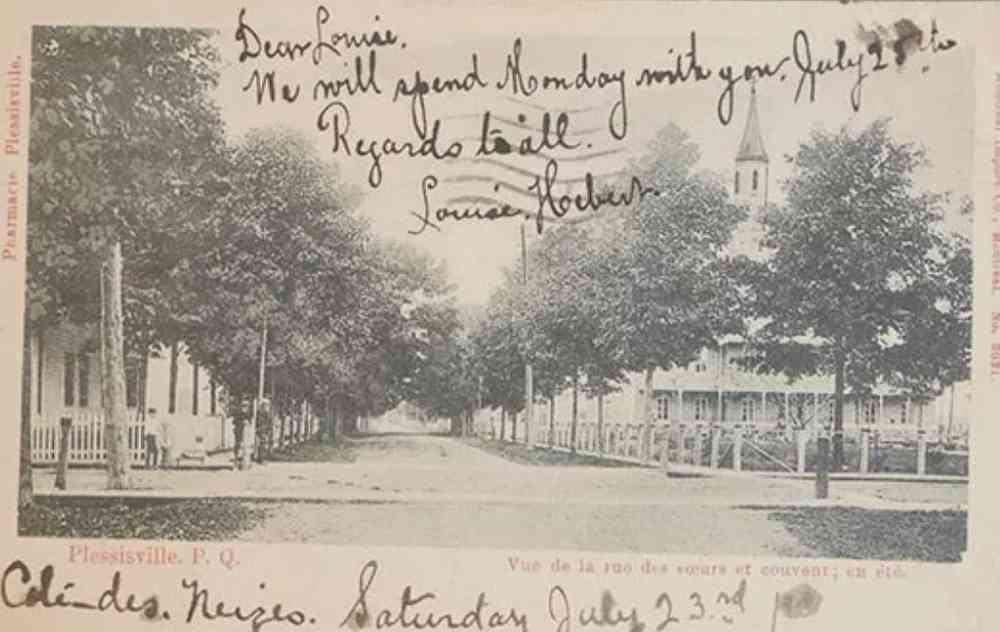 Dear Louise.
We will spend Monday with you. July 25th
Regards to all.
Louise. Hebert.
Pharmacie Plessisville.
Plessisville. P. Q.
Vue de la rue des sœurs et couvent; en été.
Côté-des. Neizes. Saturday July 23.rd